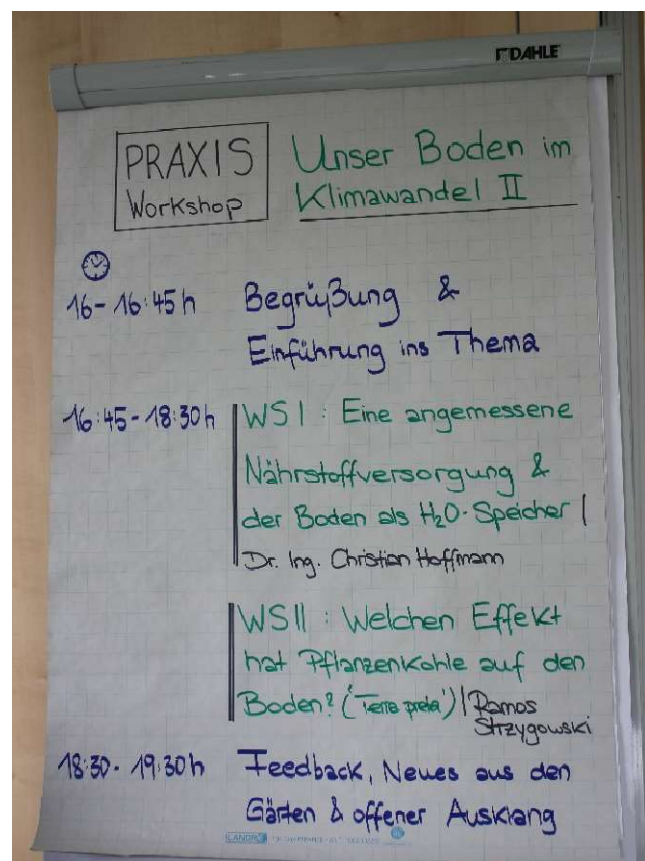 DAHLE
PRAXIS
Workshop
Unser Boden im
Klimawandel II
16-16:45h Begrüßung &
Einführung ins Thema
16:45-18:30h WS I : Eine angemessene
Nährstoffversorgung &
der Boden als H₂O-Speicher |
Dr. Ing. Christian Hoffmann
WS II : Welchen Effekt
hat Pflanzenkohle auf den
Boden? ('Terra preta') | Ramos
Strzygowski
18:30-19:30h Feedback, Neues aus den
Gärten & offener Ausklang
LANDRÉ